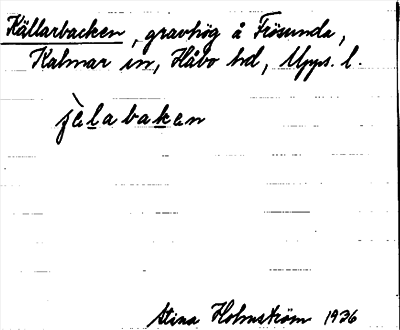 Källarbacken, gravhög å Frösunda,
Kalmar sn, Håbo hd, Upps. l.
jèlabaken
Stina Holmström 1936